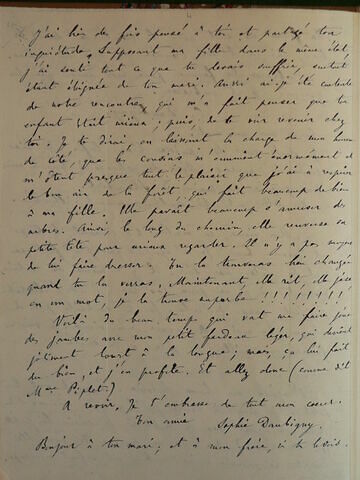 J'ai bien des fois pensé à toi et partagé ton
inquiétude. Supposant ma fille dans le même état,
j'ai senti tout ce que tu devais souffrir, surtout
étant éloignée de ton mari. Aussi ai-je été contente
de notre rencontre, qui m'a fait penser que ton
enfant était mieux; puis, de te voir revenir chez
toi. Je te dirai, en laissant la charge de mon
de côté, que les cousins m'ennuient énormément et
m'ôtent presque tout le plaisir que j'ai à respirer
le bon air de la forêt, qui fait beaucoup de bien
à ma fille. Elle paraît beaucoup s'amuser des
arbres. Aussi, le long du chemin, elle renverse sa
petite tête pour mieux regarder. Il n'y a pas moyen
de lui faire dresser. Tu la trouveras bien changée
quand tu la verras. Maintenant, elle rit, elle
en un mot, je la trouve superbe !!!!!!!!
Voilà du beau temps qui va me faire
des jambes avec mon petit fardeau léger, qui devient
joliment lourd à la longue; mais, ça lui fait
du bien, et j'en profite. Et allez donc (comme dit
Mme Piplet.)
A revoir, Je t'embrasse de tout mon coeur.
Ton amie Sophie Daubigny.
Bonjour à ton mari, et à mon frère, si tu le vois.